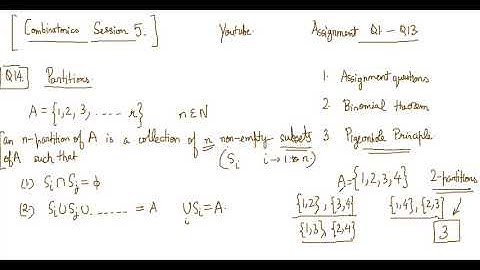 [ Combinatorics Session 5. ]
Youtube
Assignment Q1 - Q13
Q14. Partitions.
A = {1, 2, 3, ..... r} n ∈ N
an n-partition of A is a collection of n non-empty subsets
of A such that
(Si i → 1 to n.)
(1) Si ∩ Sj = ϕ
(2) Si ∪ Sj ∪ ....... = A ∪Si = A.
i
1. Assignment questions
2. Binomial theorem
3 Pigeonhole Principle
A = {1, 2, 3, 4} 2-partitions
{1,2}, {3,4} {1,4}, {2,3}
{1,3}, {2,4}
3